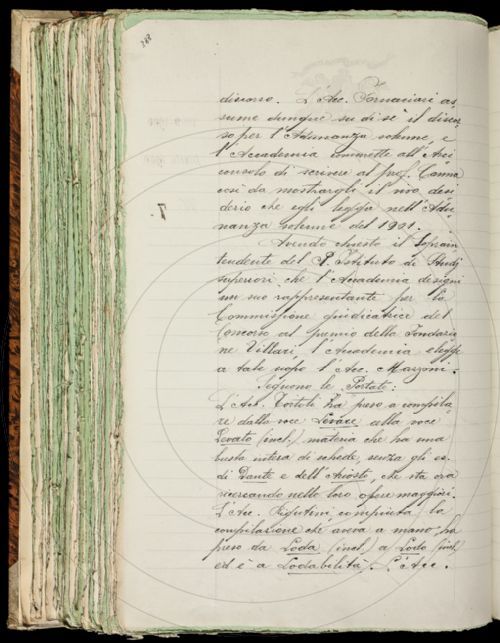 discorso. L'Acc. Fornaciari as-
sume dunque su di sè il discor-
so per l'Adunanza solenne, e
l'Accademia commette all'Arci
consolo di scrivere al prof. Canna
così da mostrargli il vivo desi
derio che egli legga nell'Adu-
nanza solenne del 1901.
7.
Avendo chiesto il Soprain
tendente del R. Istituto di Studj
superiori che l'Accademia designi
un suo rappresentante per la
Commissione giudicatrice del
Concorso al premio della Fondazio
ne Villari, l'Accademia elegge
a tale uopo l'Acc. Mazzoni.
Seguono le Portate:
L'Acc. Tortoli ha preso a compila-
re dalla voce Levare alla voce
(incl.) materia che ha una
busta intera di schede, senza gli es.
di Dante e dell'Ariosto, che sta ora
ricercando nelle loro opere maggiori.
L'Acc. Rigutini compiuta la
compilazione che aveva a mano, ha
preso da Loda (incl.) a Lodo (incl.)
ed è a Lodabilità. L'Acc.